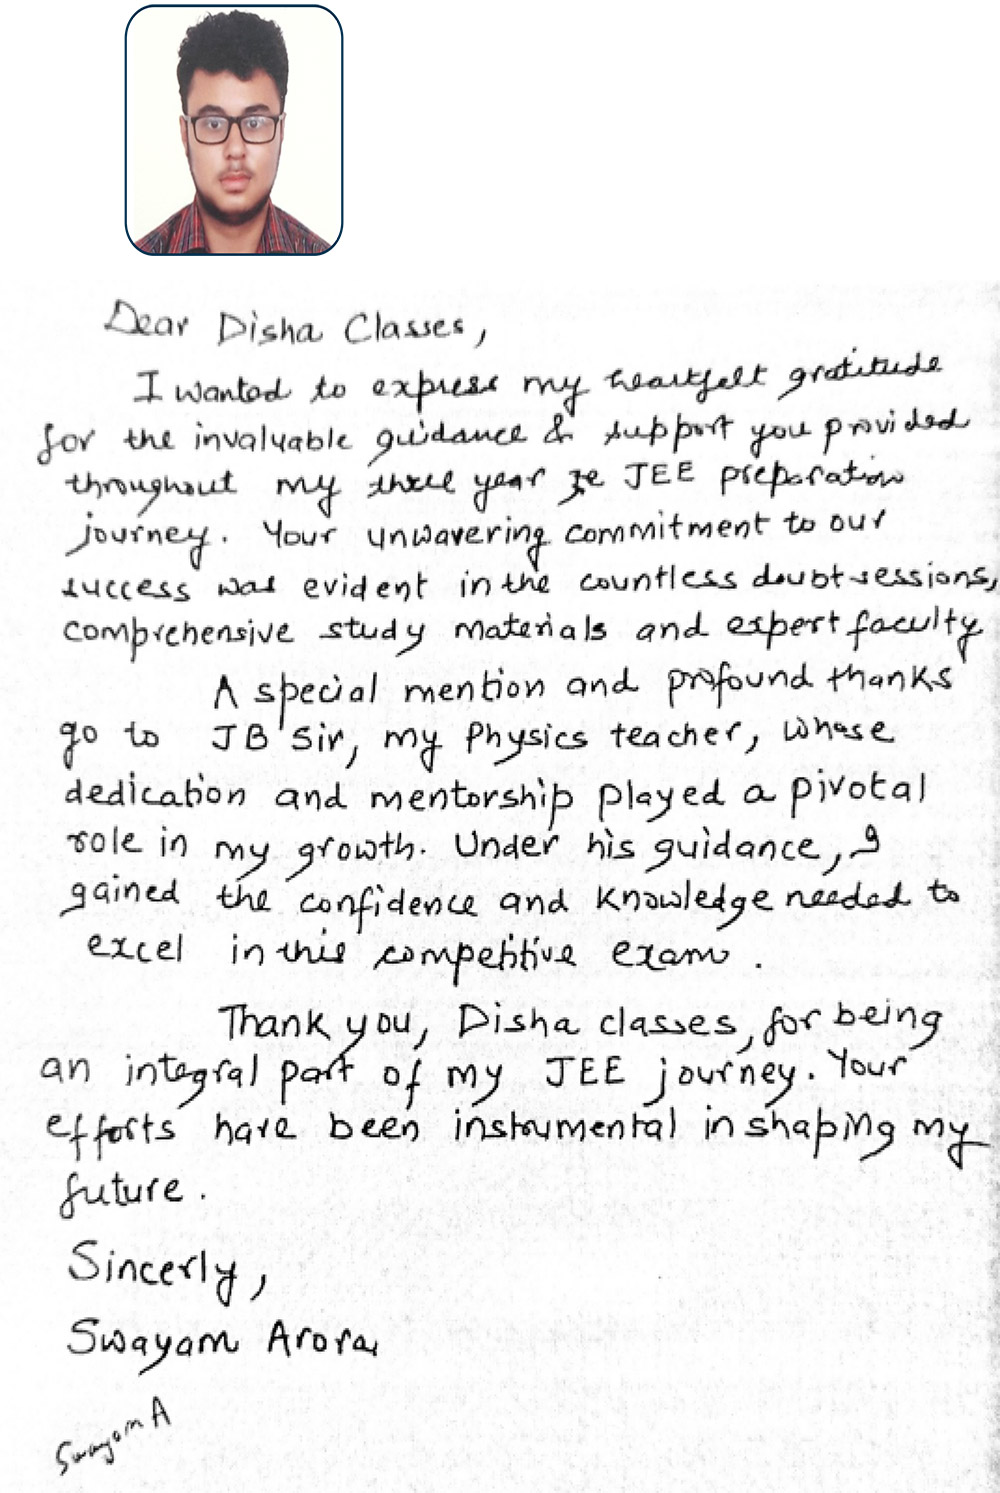 Dear Disha Classes,
I wanted to express my heartfelt gratitude
for the invaluable guidance & support you provided
throughout my three year JEE preparation
journey. Your unwavering commitment to our
success was evident in the countless doubt sessions,
comprehensive study materials and expert faculty
A special mention and profound thanks
go to JB Sir, my Physics teacher, whose
dedication and mentorship played a pivotal
role in my growth. Under his guidance, I
gained the confidence and knowledge needed to
excel in this competitive exam.
Thank you, Disha classes, for being
an integral part of my JEE journey. Your
efforts have been instrumental in shaping my
future.
Sincerly,
Swayam Arora
Swayam A